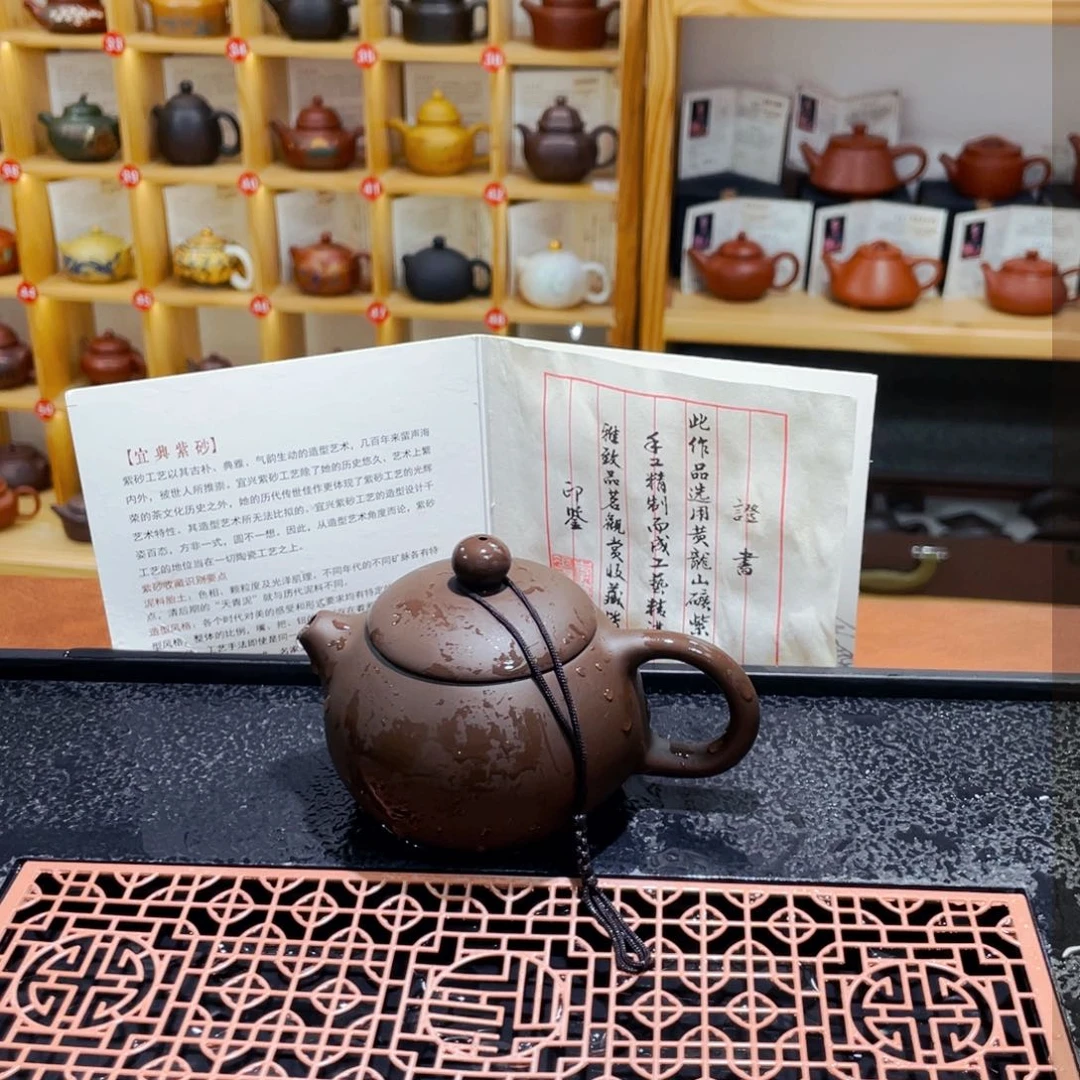 【宜典紫砂】
紫砂工艺以其古朴、典雅、气韵生动的造型艺术,几百年来留声海
内外,被世人所推崇。宜兴紫砂工艺除了她的历史悠久、艺术上繁
荣的茶文化历史之外,她的历代传世佳作更体现了紫砂工艺的光辉
艺术特性。其造型艺术所无法比拟的。宜兴紫砂工艺的造型设计千
姿百态,方非一式,圆不一想。因此,从造型艺术角度而论,紫砂
工艺的地位当在一切陶瓷工艺之上。
紫砂收藏识别要点
泥料胎土:色相、颗粒度及光泽肌理,不同年代的不同矿脉各有特
点,清后期的"天青泥"就与历代泥料不同。
造型风格:各个时代对美的感受和形式要求均有特定
型风格。整体的比例,嘴、把、钮
工艺手法即使是同一
證書
此作品选用黄龍山礦紫
手工精制而成工藝精
雅致品茗觀賞收藏
印鑒
33
34
35
36
38
39
40
41
42
44
45
46
47
48